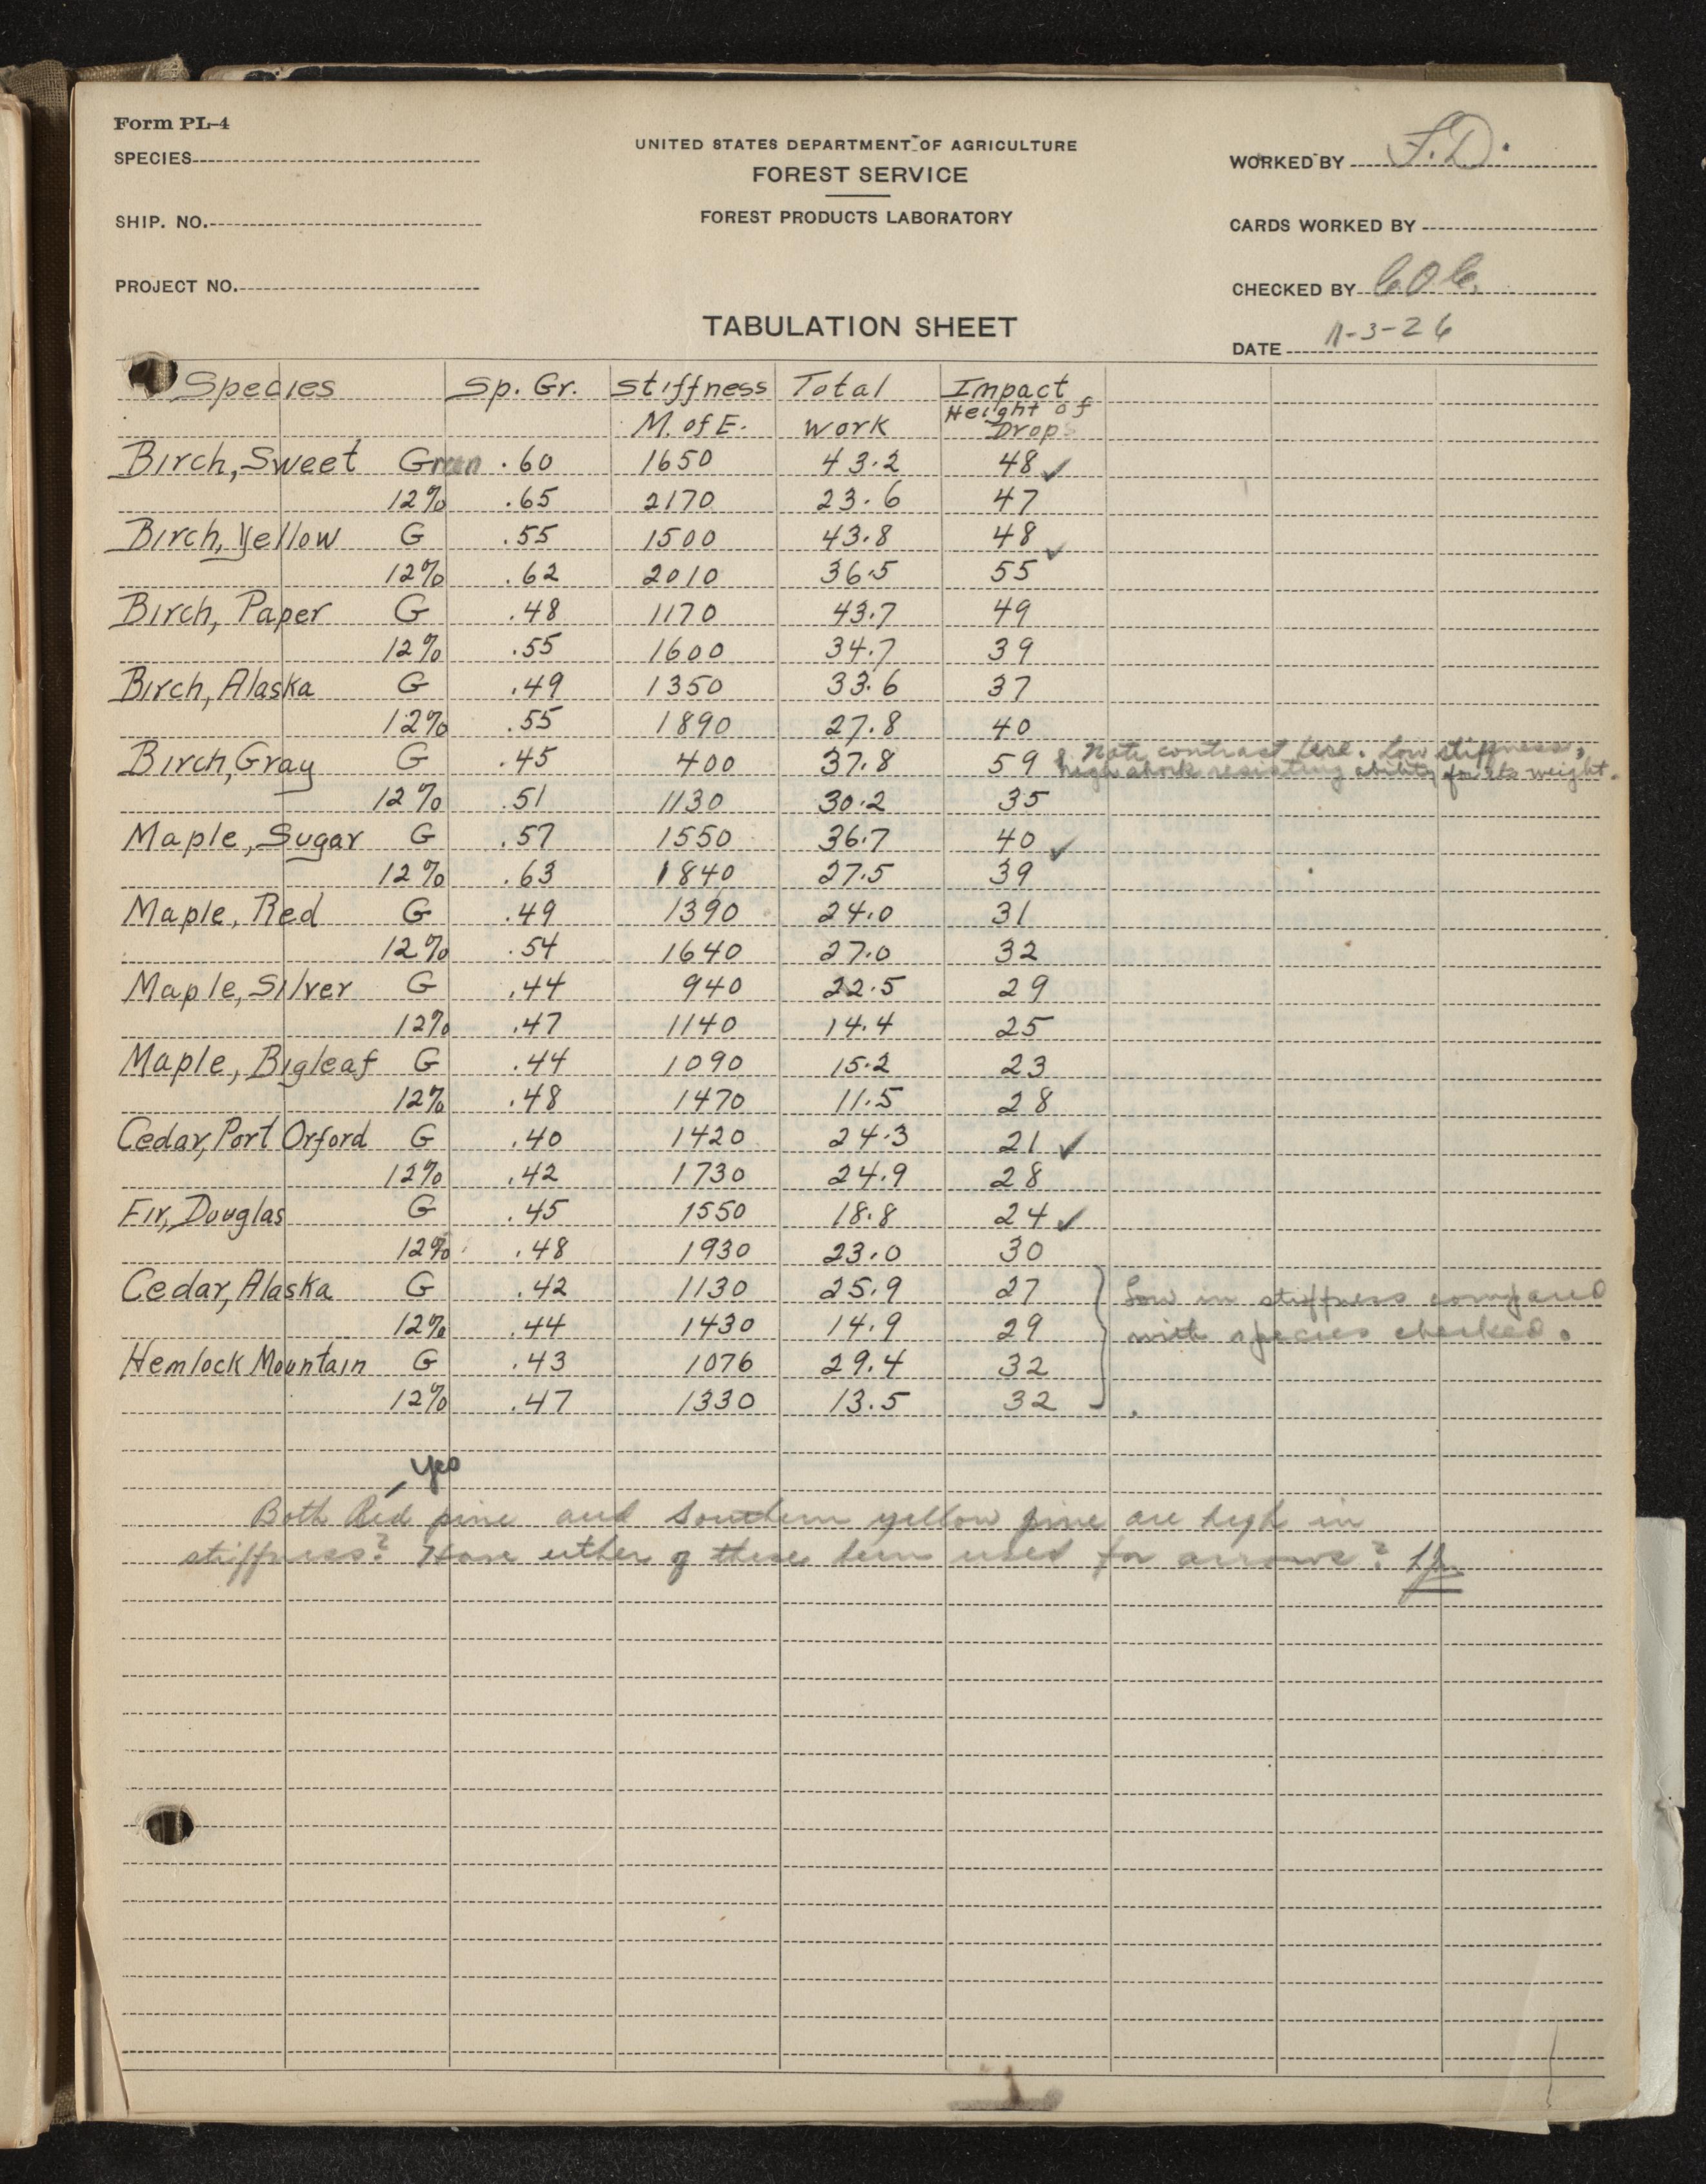 Form PL-4
SPECIES
UNITED STATES DEPARTMENT OF AGRICULTURE
WORKED BY F.D.
FOREST SERVICE
SHIP. NO.
FOREST PRODUCTS LABORATORY
CARDS WORKED BY
PROJECT NO.
CHECKED BY
TABULATION SHEET
DATE 11-3-26
Species Sp. Gr. Stiffness Total Impact
M. of E. Work Height of
Drop
Birch, Sweet Green .60 1650 43.2 48 ✓
12% .65 2170 23.6 47
Birch, Yellow G .55 1500 43.8 48 ✓
12% .62 2010 36.5 55
Birch, Paper G .48 1170 43.7 49
12% .55 1600 34.7 39
Birch, Alaska G .49 1350 33.6 37
12% .55 1890 27.8 40
Birch, Gray G .45 400 37.8 59 Note contrast here. Low stiffness,
high shock resisting ability for its weight.
12% .51 1130 30.2 35
Maple, Sugar G .57 1550 36.7 40 ✓
12% .63 1840 27.5 39
Maple, Red G .49 1390 24.0 31
12% .54 1640 27.0 32
Maple, Silver G .44 940 22.5 29
12% .47 1140 14.4 25
Maple, Bigleaf G .44 1090 15.2 23
12% .48 1470 11.5 28
Cedar, Port Orford G .40 1420 24.3 21 ✓
12% .42 1730 24.9 28
Fir, Douglas G .45 1550 18.8 24 ✓
12% .48 1930 23.0 30
Cedar, Alaska G .42 1130 25.9 27 Low in stiffness compared
12% .44 1430 14.9 29 with species checked.
Hemlock Mountain G .43 1076 29.4 32
12% .47 1330 13.5 32
Yes
Both Red pine and Southern yellow pine are high in
stiffness? Have either of these been used for arrows?